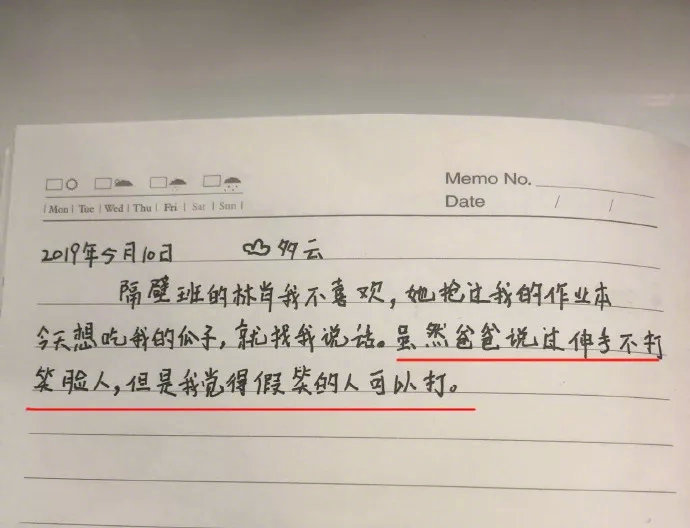 Memo No.
| Mon | Tue | Wed | Thu | Fri | Sat | Sun |
Date / /
2019年5月10日 多云
隔壁班的林肖我不喜欢，她抢过我的作业本
今天想吃我的瓜子，就找我说话。虽然爸爸说过伸手不打
笑脸人，但是我觉得假笑的人可以打。